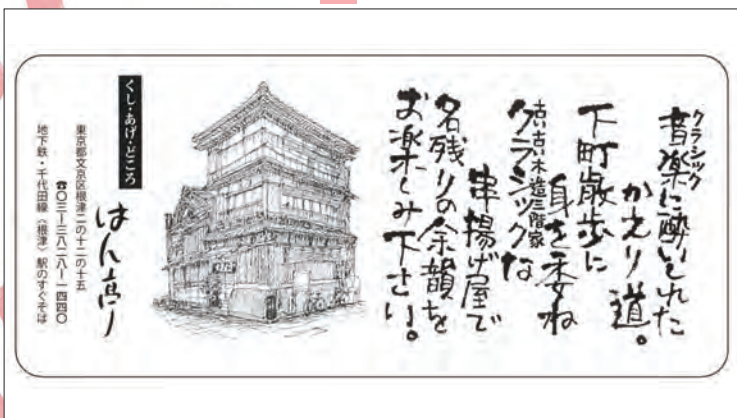 クラシック
音楽に酔いしれた
かえり道。
下町散歩に
身を委ね
古い古い木造三階家
クラシックな
串揚げ屋で
名残りの余韻を
お楽しみ下さい。
くし・あげ・どころ
はん亭
東京都文京区根津二の十二の十五
☎〇三ー三八二八ー一四四〇
地下鉄・千代田線〈根津〉駅のすぐそば